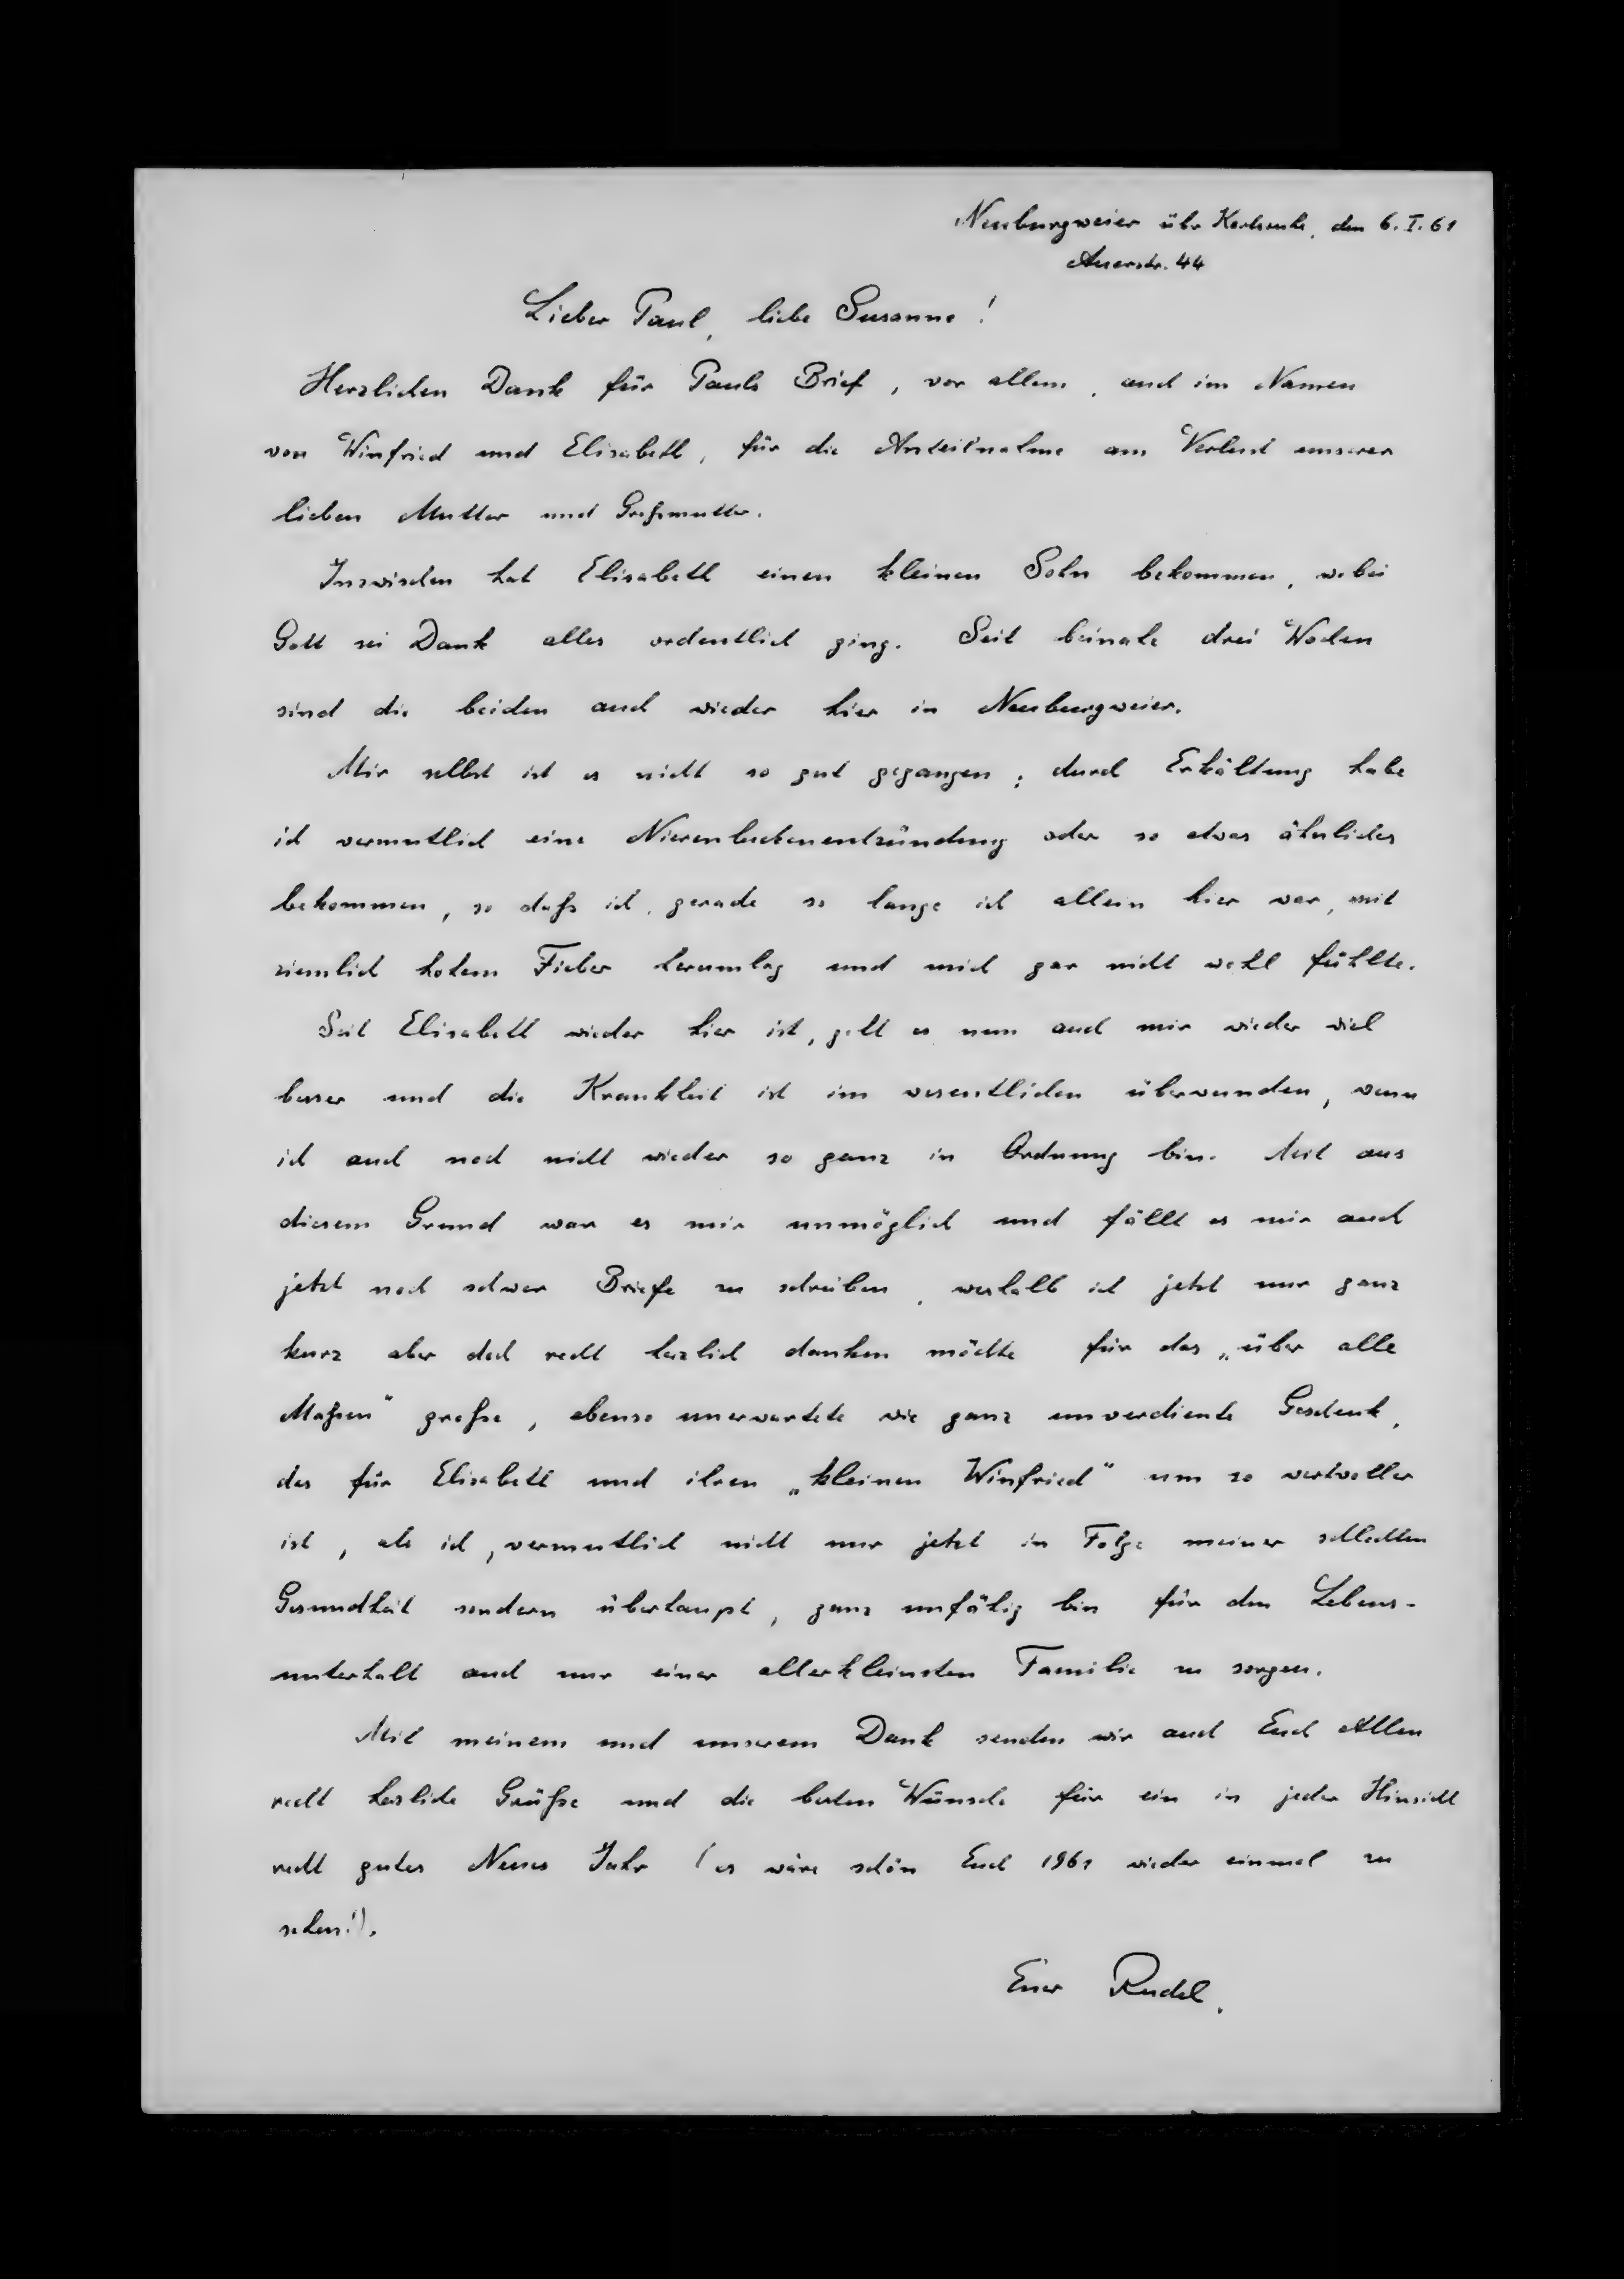 Neuburgweier über Karlsruhe, den 6.I.61
Auerstr. 44
Lieber Paul, liebe Susanne!
Herzlichen Dank für Pauls Brief, vor allem, auch im Namen
von Winfried und Elisabeth, für die Anteilnahme am Verlust unserer
lieben Mutter und Großmutter.
Inzwischen hat Elisabeth einen kleinen Sohn bekommen, wobei
Gott sei Dank alles ordentlich ging. Seit beinahe drei Wochen
sind die beiden auch wieder hier in Neuburgweier.
Mir selbst ist es nicht so gut gegangen; durch Erkältung habe
ich vermutlich eine Nierenbeckenentzündung oder so etwas ähnliches
bekommen, so daß ich, gerade so lange ich allein hier war, mit
ziemlich hohem Fieber herumlag und mich gar nicht wohl fühlte.
Seit Elisabeth wieder hier ist, geht es nun auch mir wieder viel
besser und die Krankheit ist im wesentlichen überwunden, wenn
ich auch noch nicht wieder so ganz in Ordnung bin. Mit aus
diesem Grund war es mir unmöglich und fällt es mir auch
jetzt noch schwer Briefe zu schreiben, weshalb ich jetzt nur ganz
kurz aber doch recht herzlich danken möchte für das „über alle
Maßen" große, ebenso unerwartete wie ganz unverdiente Geschenk,
das für Elisabeth und ihren „kleinen Winfried" um so wertvoller
ist, als ich, vermutlich nicht nur jetzt in Folge meiner schlechten
Gesundheit sondern überhaupt, ganz unfähig bin für den Lebens-
unterhalt auch nur einer allerkleinsten Familie zu sorgen.
Mit meinem und unserem Dank senden wir auch Euch Allen
recht herzliche Grüße und die besten Wünsche für ein in jeder Hinsicht
recht gutes Neues Jahr (es wäre schön Euch 1961 wieder einmal zu
sehen!).
Euer Rudel.